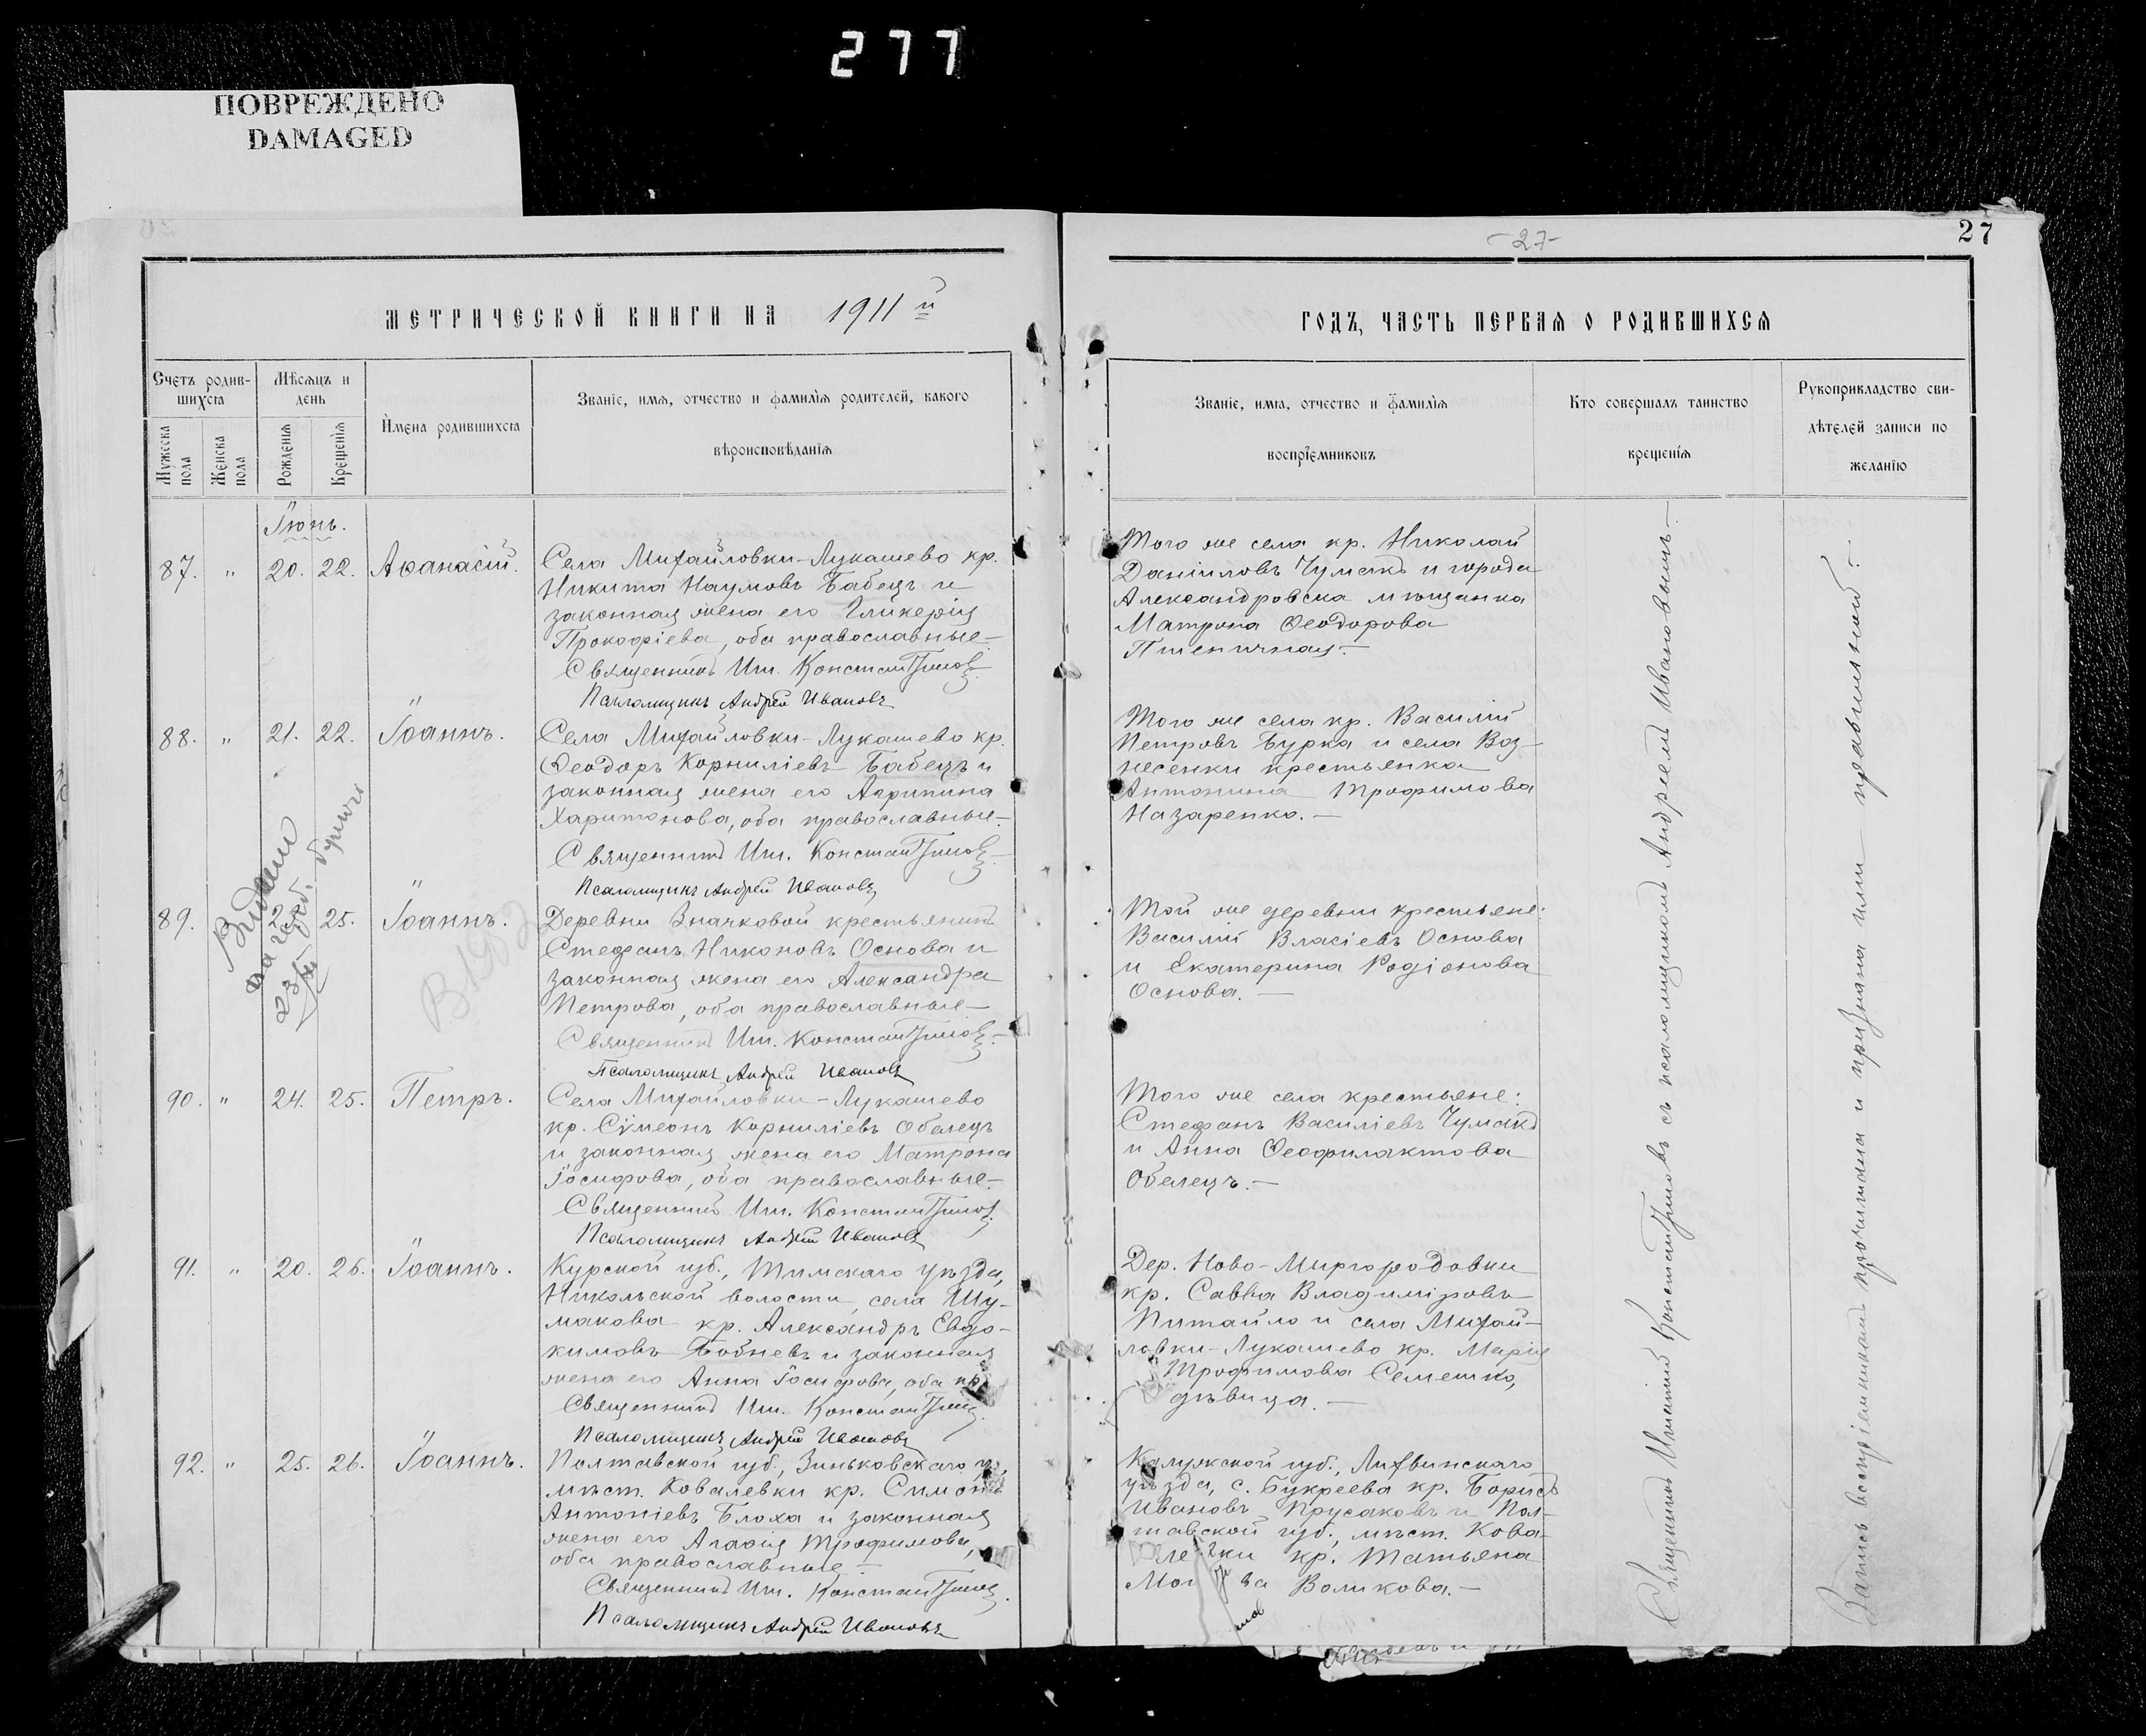 277
ПОВРЕЖДЕНО
DAMAGED
-27-
27
МЕТРИЧЕСКОЙ КНИГИ НА 1911й
ГОДЪ, ЧАСТЬ ПЕРВАЯ О РОДИВШИХСЯ
Счетъ родив-
шихся
Мѣсяцъ и
день
Мужеска
пола
Женска
пола
Рожденія
Крещенія
Имена родившихся
Званіе, имя, отчество и фамилія родителей, какого
вѣроисповѣданія
Званіе, имя, отчество и фамилія
воспріемниковъ
Кто совершалъ таинство
крещенія
Рукоприкладство сви-
дѣтелей записи по
желанію
Іюнь.
87. " 20. 22. Аѳанасій.
Села Михайловки-Лукашево кр.
Никита Наумовъ Бабецъ и
законная жена его Гликерія
Прокофіева, оба православные.-
Священникъ Игн. Константиновъ.
Псаломщикъ Андрей Ивановъ
Того же села кр. Николай
Даніиловъ Чумакъ и города
Александровска мѣщанка
Матрона Ѳеодорова
Пшеничная.-
88. " 21. 22. Іоаннъ.
Села Михайловки-Лукашево кр.
Ѳеодоръ Корниліевъ Бабецъ и
законная жена его Агрипина
Харитонова, оба православные.-
Священникъ Игн. Константиновъ.
Псаломщикъ Андрей Ивановъ
Того же села кр. Василій
Петровъ Бурка и села Воз-
несенки крестьянка
Антонина Трофимова
Назаренко.-
89. 25. Іоаннъ.
Деревни Значковой крестьянинъ
Стефанъ Никоновъ Основа и
законная жена его Александра
Петрова, оба православные-
Священникъ Игн. Константиновъ.
Псаломщикъ Андрей Ивановъ
Той же деревни крестьяне:
Василій Власіевъ Основа
и Екатерина Родіонова
Основа.-
90. " 24. 25. Петръ.
Села Михайловки-Лукашево
кр. Сѵмеонъ Корниліевъ Обелецъ
и законная жена его Матрона
Іосифова, оба православные-
Священникъ Игн. Константиновъ.
Псаломщикъ Андрей Ивановъ
Того же села крестьяне:
Стефанъ Василіевъ Чумакъ
и Анна Ѳеофилактова
Обелецъ.-
91. " 20. 26. Іоаннъ.
Курской губ., Тимскаго уѣзда,
Никольской волости, села Шу-
макова кр. Александръ Евдо-
кимовъ Бобневъ и законная
жена его Анна Іосифова, оба пр.
Священникъ Игн. Константиновъ.
Псаломщикъ Андрей Ивановъ
Дер. Ново-Миргородовки
кр. Савва Владиміровъ
Питайло и села Михай-
ловки-Лукашево кр. Марія
Трофимова Семешко,
дѣвица.-
92. " 25. 26. Іоаннъ.
Полтавской губ., Зиньковскаго у.,
мѣст. Ковалевки кр. Симонъ
Антоніевъ Блоха и законная
жена его Агафія Трофимова,
оба православные-
Священникъ Игн. Константиновъ.
Псаломщикъ Андрей Ивановъ
Калужской губ., Лихвинскаго
уѣзда, с. Букреева кр. Борисъ
Ивановъ Прусаковъ и Пол-
тавской губ., мѣст. Кова-
кр. Татьяна
Воликова.-
Священникъ Игнатій Константиновъ съ псаломщикомъ Андреемъ Ивановымъ.-
Запись воспріемниками прочитана и признана ими правильной.-